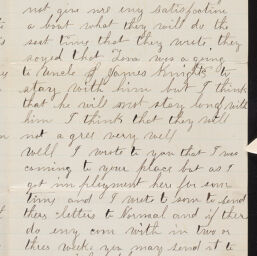 not give me eny satisfaction
a bout what they will do the
last time that they wrote they
sayed that Tena was a going
to Uncle James Knights to
stay with him but I think
that he will not stay long with
him I think that they will
not a gree very well
well I wrote to you that I was
coming to your place but as I
got imployment her for som
time and I wrote to som to send
theas cletters to Normal and if ther
do eny com with in two or
three weeks you may send it to